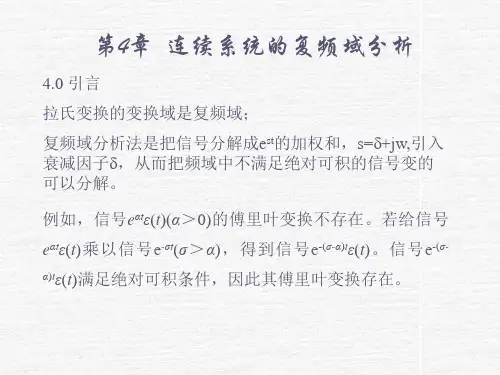 第4章 连续系统的复频域分析
4.0 引言
拉氏变换的变换域是复频域；
复频域分析法是把信号分解成e^st的加权和，s=δ+jw,引入
衰减因子δ，从而把频域中不满足绝对可积的信号变的
可以分解。
例如，信号e^αtε(t)(α＞0)的傅里叶变换不存在。若给信号
e^αtε(t)乘以信号e^-σt(σ＞α)，得到信号e^-(σ-α)tε(t)。信号e^-(σ-
^α)tε(t)满足绝对可积条件，因此其傅里叶变换存在。